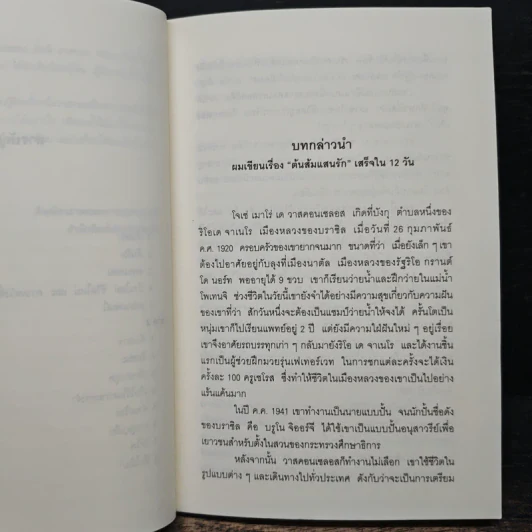 บทกล่าวนำ
ผมเขียนเรื่อง "ต้นส้มแสนรัก" เสร็จใน 12 วัน
โจเซ่ เมาโร่ เด วาสคอนเซลอส เกิดที่บังกุ ตำบลหนึ่งของ
ริโอเด จาเนโร เมืองหลวงของบราซิล เมื่อวันที่ 26 กุมภาพันธ์
ค.ศ. 1920 ครอบครัวของเขายากจนมาก ขนาดที่ว่า เมื่อยังเล็ก ๆ เขา
ต้องไปอาศัยอยู่กับลุงที่เมืองนาตัล เมืองหลวงของรัฐริโอ กรานด์
โด นอร์ท พออายุได้ 9 ขวบ เขาก็เรียนว่ายน้ำและฝึกว่ายในแม่น้ำ
โพเทนจิ ช่วงชีวิตในวัยนี้เขายังจำได้อย่างมีความสุขเกี่ยวกับความฝัน
ของเขาที่ว่า สักวันหนึ่งจะต้องเป็นแชมป์ว่ายน้ำให้จงได้ ครั้นโตเป็น
หนุ่มเขาก็ไปเรียนแพทย์อยู่ 2 ปี แต่ยังมีความใฝ่ฝันใหม่ ๆ อยู่เรื่อย
เขาจึงอาศัยรถบรรทุกเก่า ๆ กลับมายังริโอ เด จาเนโร และได้งานชิ้น
แรกเป็นผู้ช่วยฝึกมวยรุ่นเฟเทอร์เวท ในการชกแต่ละครั้งจะได้เงิน
ครั้งละ 100 ครูเซโรส ซึ่งทำให้ชีวิตในเมืองหลวงของเขาเป็นไปอย่าง
แร้นแค้นมาก
ในปี ค.ศ. 1941 เขาทำงานเป็นนายแบบปั้น จนนักปั้นชื่อดัง
ของบราซิล คือ บรูโน จิออร์จี ได้ใช้เขาเป็นแบบปั้นอนุสาวรีย์เพื่อ
เยาวชนสำหรับตั้งในสวนของกระทรวงศึกษาธิการ
หลังจากนั้น วาสคอนเซลอสก็ทำงานไม่เลือก เขาใช้ชีวิตใน
รูปแบบต่าง ๆ และเดินทางไปทั่วประเทศ ดังกับว่าจะเป็นการเตรียม